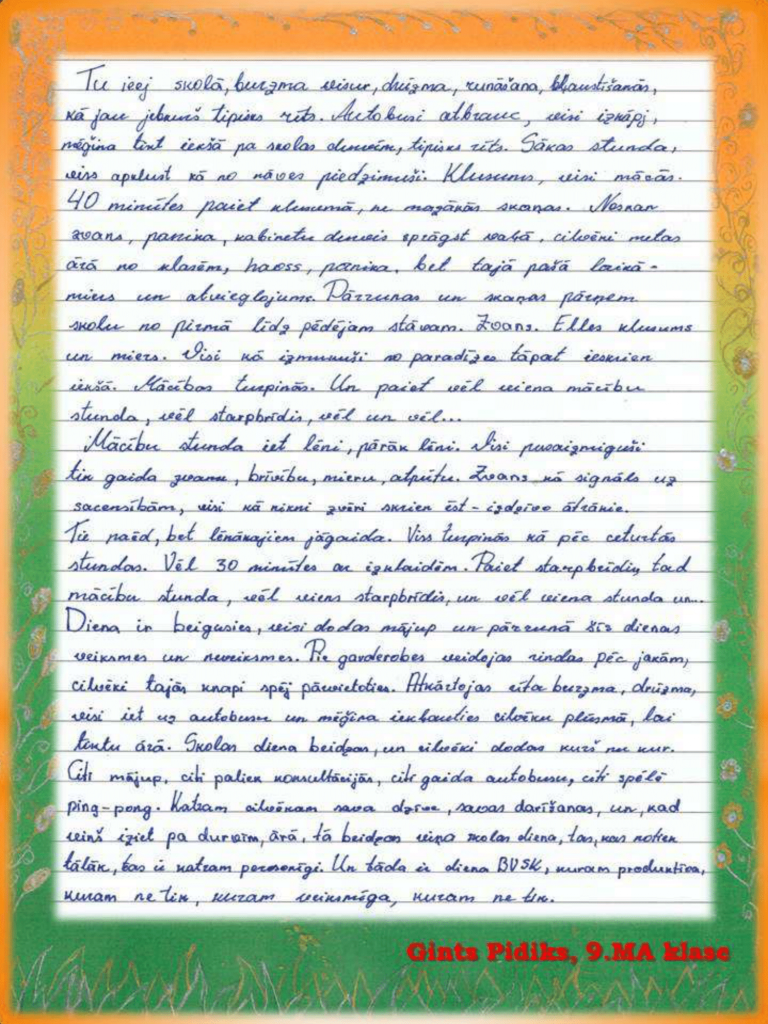 Tu ieej skolā, burzma visur, drūzma, runāšana, bļaustīšanās,
kā jau jebkurš tipisks rīts. Autobusi atbrauc, visi izkāpj,
mēģina tikt iekšā pa skolas durvīm, tipisks rīts. Sākas stunda,
viss apklust kā no nāves piedzimuši. Klusums, visi mācās.
40 minūtes paiet klusumā, ne mazākās skaņas. Noskan
zvans, panika, kabinetu durvis sprāgst vaļā, cilvēki metas
ārā no klasēm, haoss, panika, bet tajā pašā laikā -
miers un atvieglojums. Pārrunas un skaņas pārņem
skolu no pirmā līdz pēdējam stāvam. Zvans. Elles klusums
un miers. Visi kā izmukuši no paradīzes tāpat ieskrien
iekšā. Mācības turpinās. Un paiet vēl viena mācību
stunda, vēl starpbrīdis, vēl un vēl...
Mācību stunda iet lēni, pārāk lēni. Visi pusaizmiguši
tik gaida zvanu, brīvību, mieru, atpūtu. Zvans kā signāls uz
sacensībām, visi kā nikni zvēri skrien ēst - izdzīvo ātrākie.
Tie paēd, bet lēnākajiem jāgaida. Viss turpinās kā pēc ceturtās
stundas. Vēl 30 minūtes ar izklaidēm. Paiet starpbrīdis, tad
mācību stunda, vēl viens starpbrīdis, un vēl viena stunda un...
Diena ir beigusies, visi dodas mājup un pārrunā šīs dienas
veiksmes un neveiksmes. Pie garderobes veidojas rindas pēc jakām,
cilvēki tajās knapi spēj pārvietoties. Atkārtojas rīta burzma, drūzma,
visi iet uz autobusu un mēģina iekļauties cilvēku plūsmā, lai
tiktu ārā. Skolas diena beidzas, un cilvēki dodas kurš nu kur.
Citi mājup, citi paliek konsultācijās, citi gaida autobusu, citi spēlē
ping-pong. Katram cilvēkam sava dzīve, savas darīšanas, un, kad
viņš iziet pa durvīm, ārā, tā beidzas viņa skolas diena, tas, kas notiek
tālāk, tas ir katram personīgi. Un tāda ir diena BVSK, kuram produktīva,
kuram ne tik, kuram veiksmīga, kuram ne tik.
Gints Pidiks, 9.MA klase